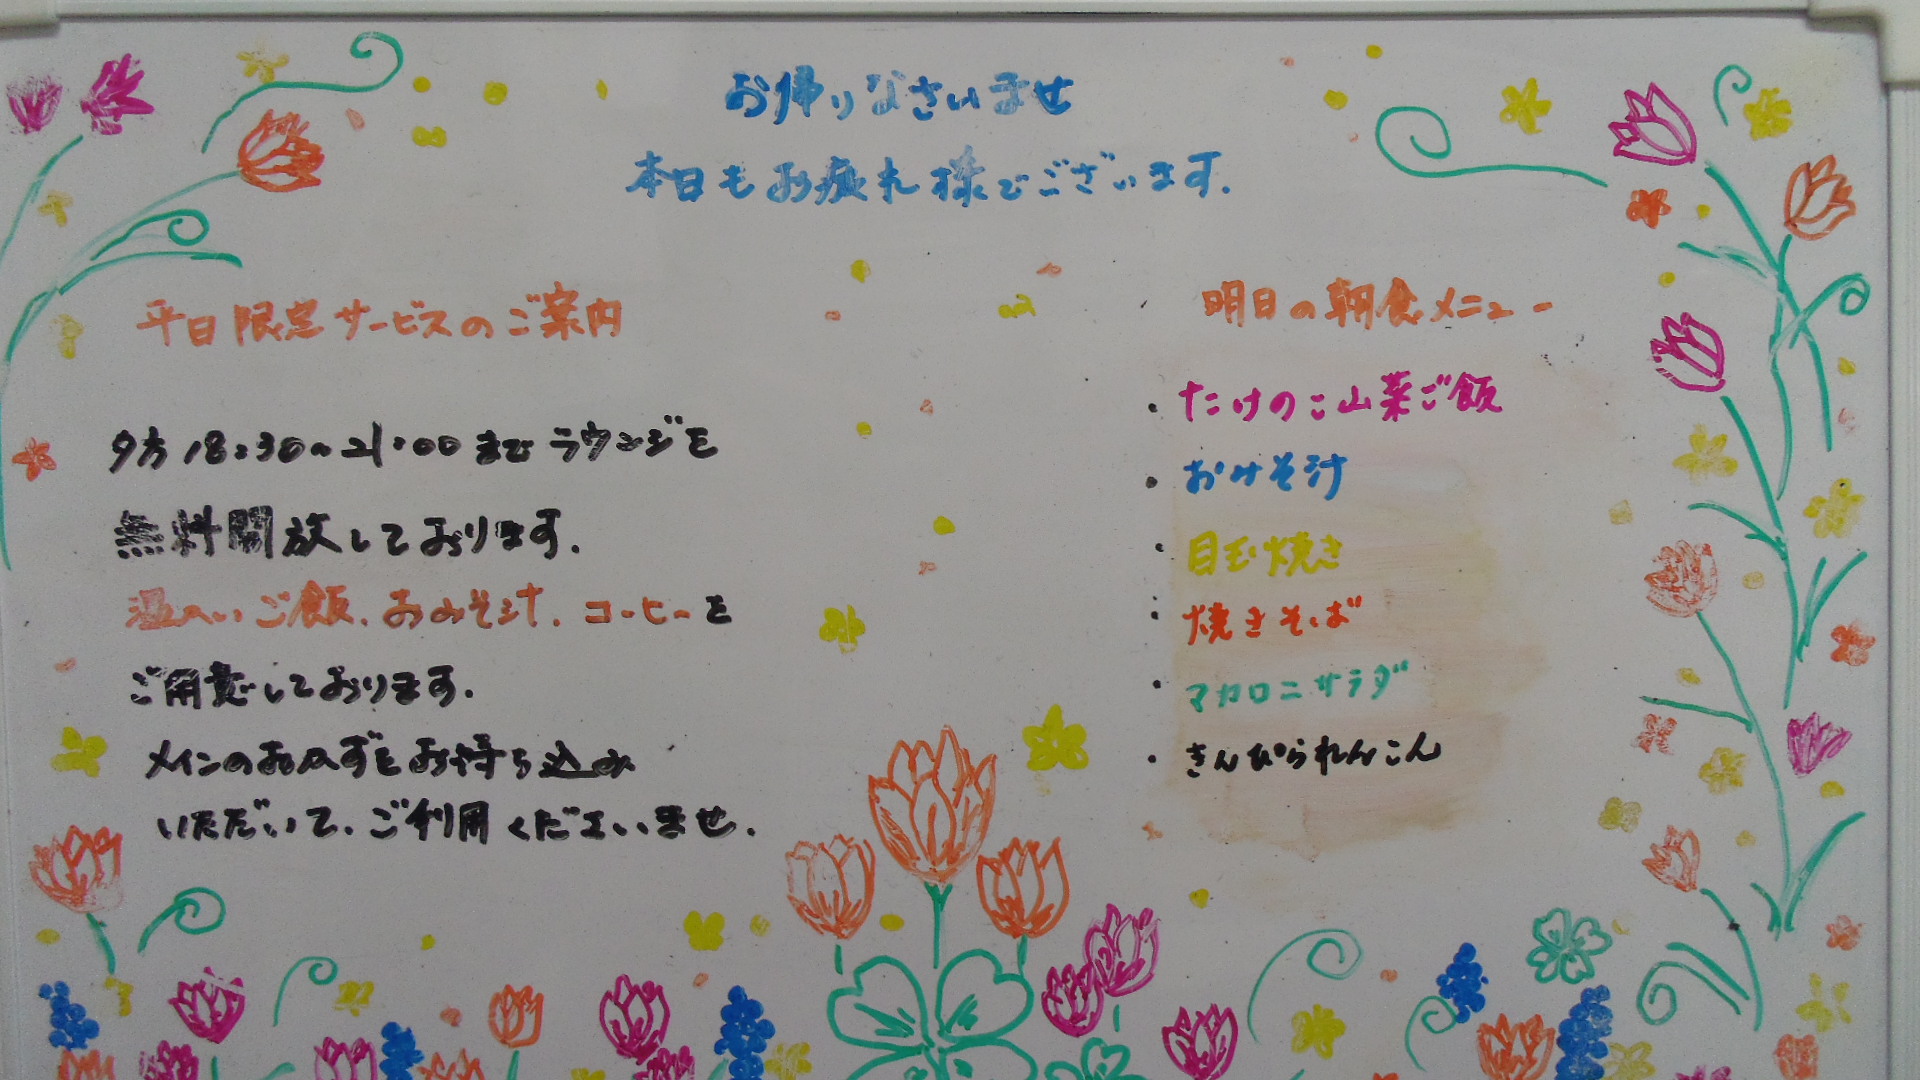 お帰りなさいませ
本日もお疲れ様でございます.
平日限定サービスのご案内
夕方18:30~21:00までラウンジを
無料開放しております.
温かいご飯.おみそ汁.コーヒーを
ご用意しております.
メインのおかずをお持ち込み
いただいて.ご利用くださいませ.
明日の朝食メニュー
・たけのこ山菜ご飯
・おみそ汁
・目玉焼き
・焼きそば
・マカロニサラダ
・きんぴられんこん